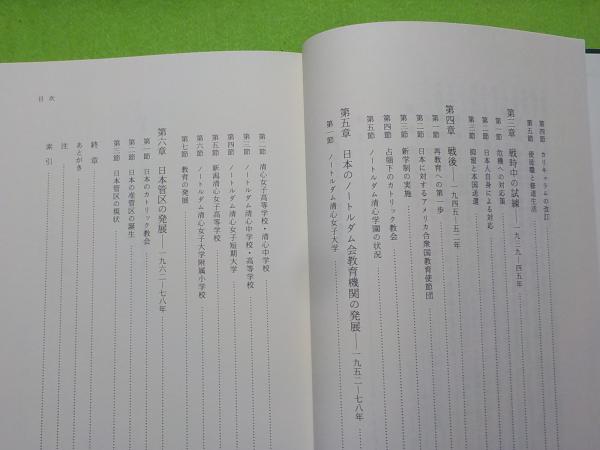 第四節 カリキュラムの改訂
第五節 使徒職と修道生活
第三章 戦時中の試練――一九三九―四五年
第一節 危機への対応策
第二節 日本人自身による対応
第三節 抑留と本国送還
第四章 戦後――一九四五―五二年
第一節 再教育への第一歩
第二節 日本に対するアメリカ合衆国教育使節団
第三節 新学制の実施
第四節 占領下のカトリック教会
第五節 ノートルダム清心学園の状況
第五章 日本のノートルダム会教育機関の発展――一九五二―七八年
第一節 ノートルダム清心女子大学
第二節 清心女子高等学校・清心中学校
第三節 ノートルダム清心中学校・高等学校
第四節 ノートルダム清心女子短期大学
第五節 新潟清心女子高等学校
第六節 ノートルダム清心女子大学附属小学校
第七節 教育の発展
第六章 日本管区の発展――一九六二―七八年
第一節 日本のカトリック教会
第二節 日本の準管区の誕生
第三節 日本管区の現状
終章
あとがき
注
索引
目次